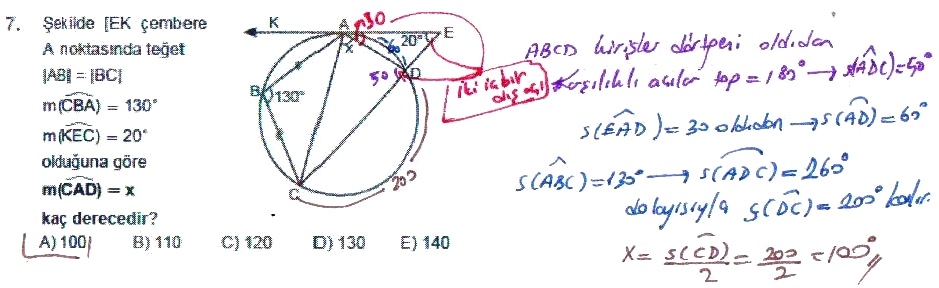 7. Şekilde [EK çembere
A noktasında teğet
|ABI = |BC|
m(CBA) = 130°
m(KEC) = 20°
olduğuna göre
m(CAD) = x
kaç derecedir?
A) 100 B) 110 C) 120 D) 130 E) 140
K A 30 E
x 60 20°
50 D
B 130°
C
200
iki iç bir
dış açı
ABCD kirişler dörtgeni olduğundan
Karşılıklı açılar top = 180° → s(ADC) = 50°
s(EAD) = 30 olduğundan → s(AD) = 60°
s(ABC) = 130° → s(ADC) = 260°
dolayısıyla s(DC) = 200° kadar.
X = s(CD)/2 = 200/2 = 100°//